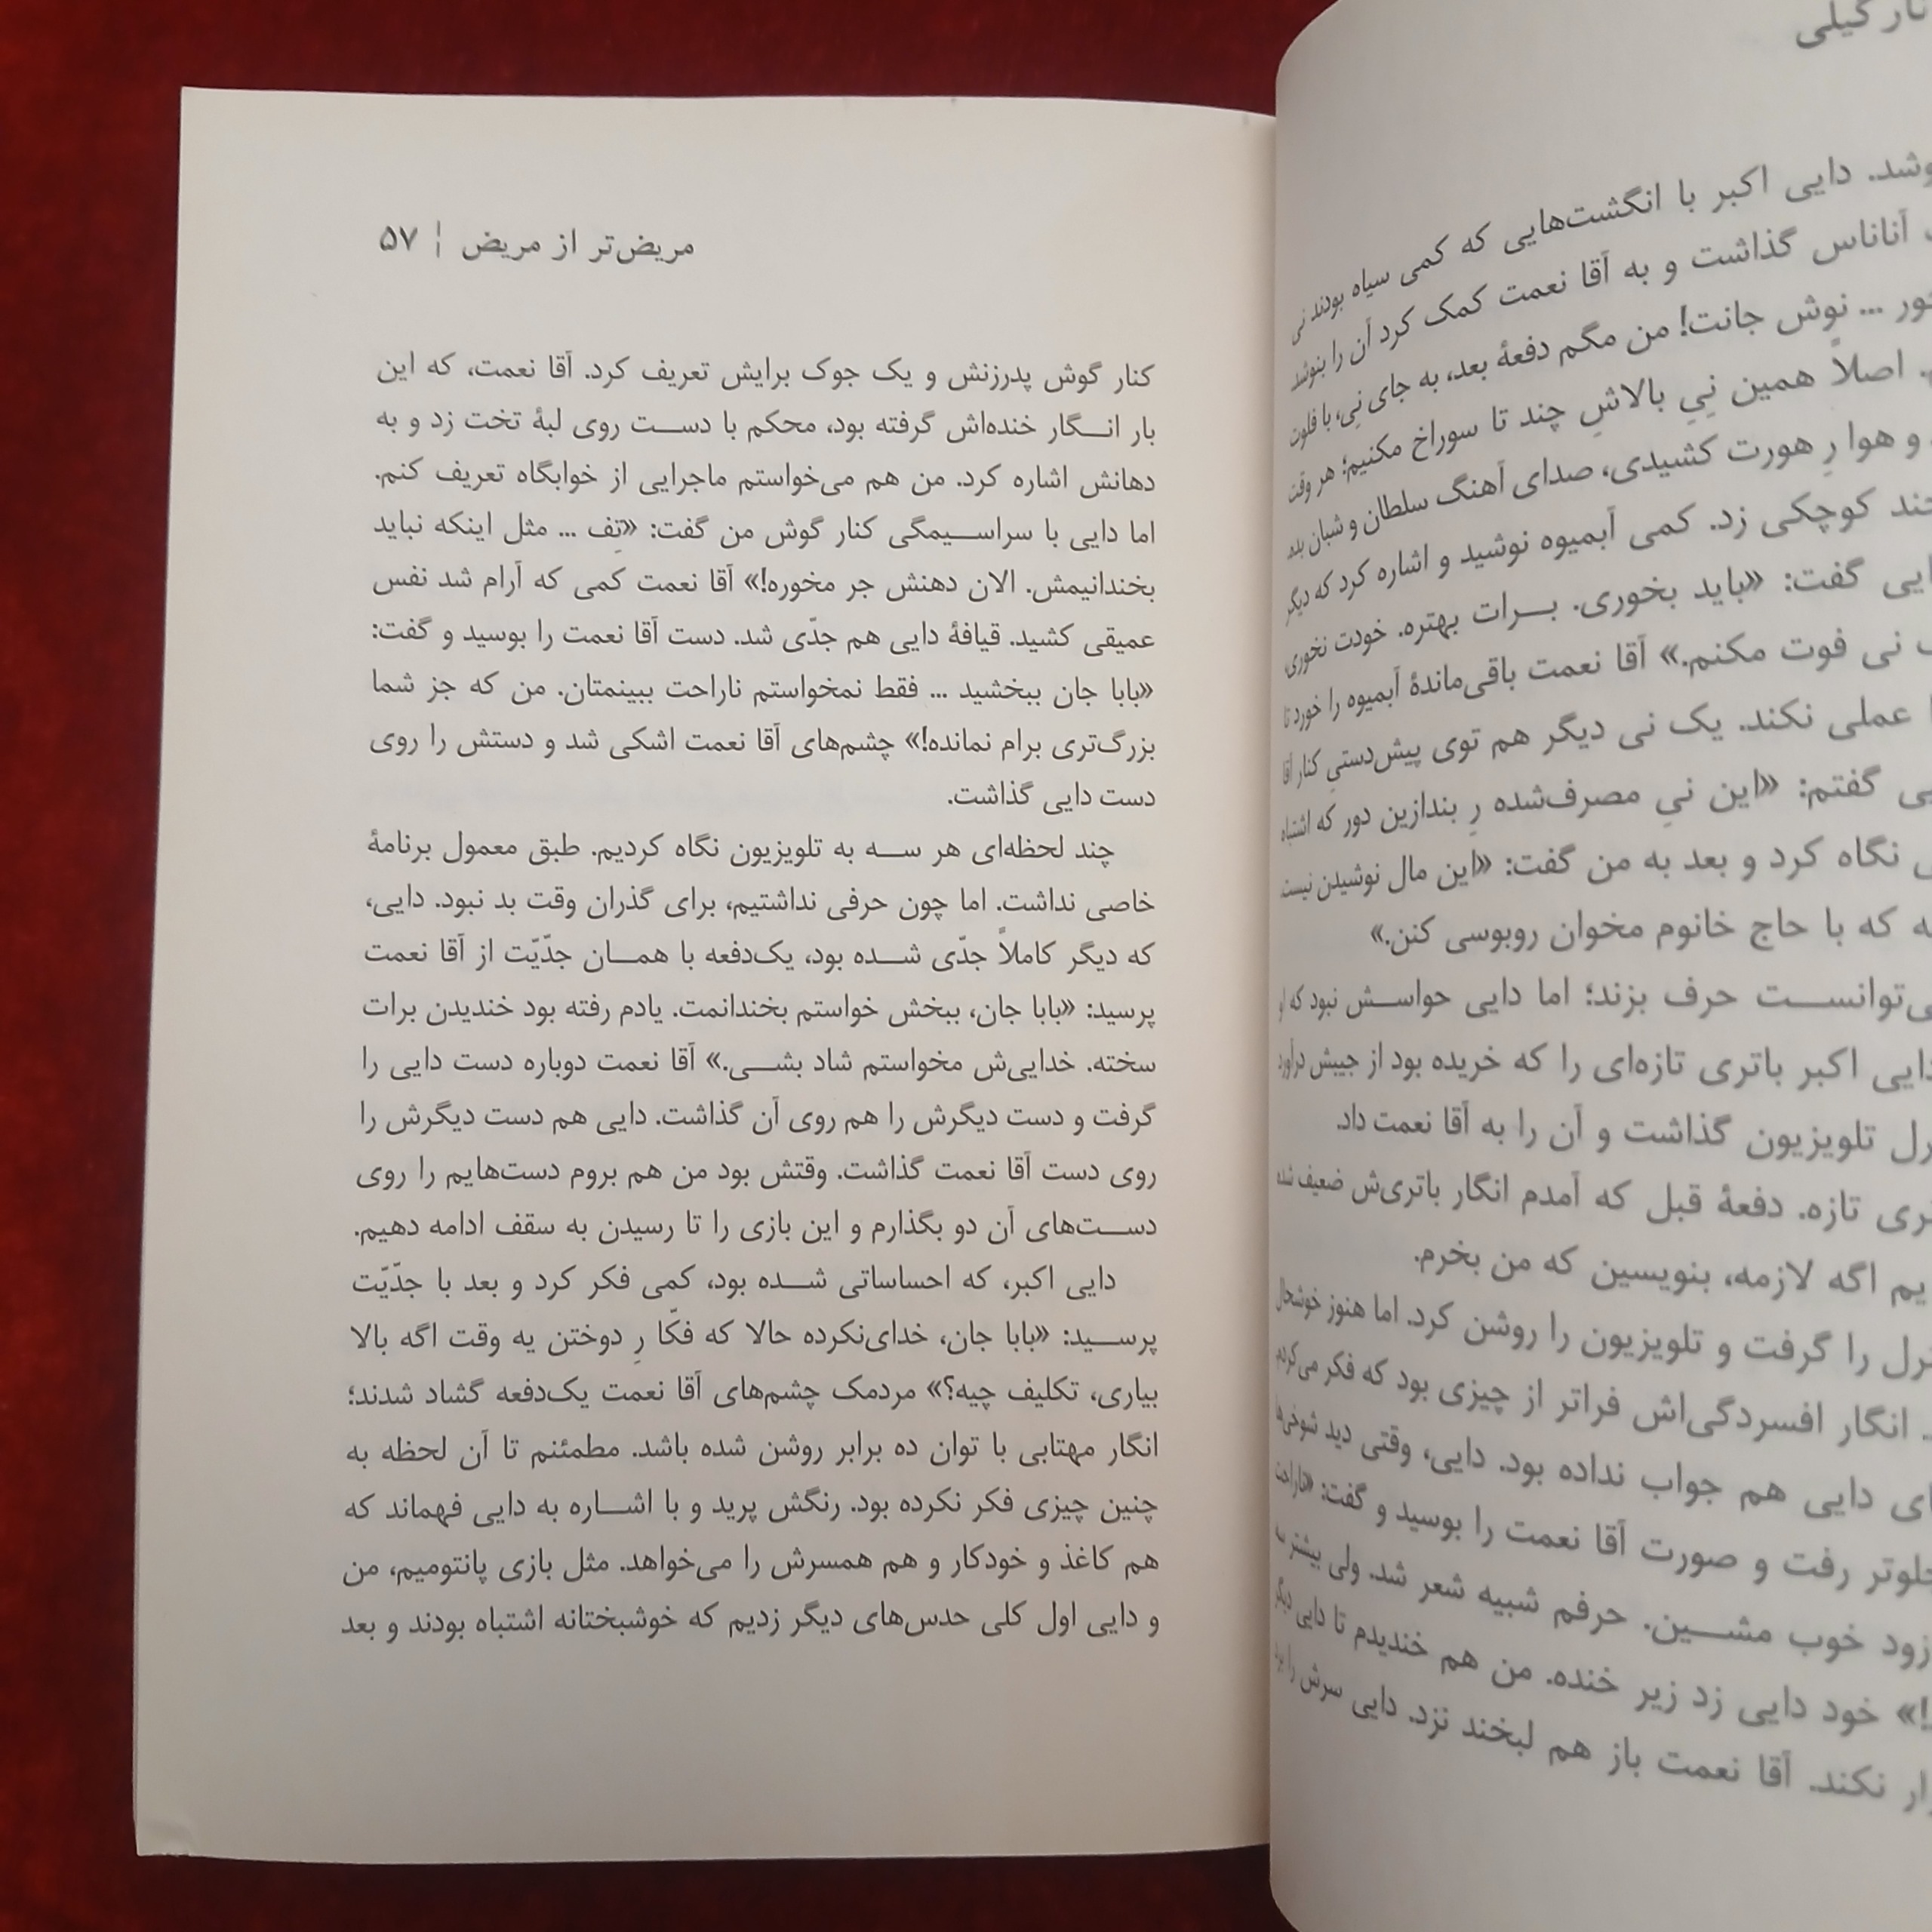 مریض‌تر از مریض | ۵۷
کنار گوش پدرزنش و یک جوک برایش تعریف کرد. آقا نعمت، که این
بار انگار خنده‌اش گرفته بود، محکم با دست روی لبهٔ تخت زد و به
دهانش اشاره کرد. من هم می‌خواستم ماجرایی از خوابگاه تعریف کنم.
اما دایی با سراسیمگی کنار گوش من گفت: «تِف ... مثل اینکه نباید
بخندانیمش. الان دهنش جر مخوره!» آقا نعمت کمی که آرام شد نفس
عمیقی کشید. قیافهٔ دایی هم جدّی شد. دست آقا نعمت را بوسید و گفت:
«بابا جان ببخشید ... فقط نمخواستم ناراحت ببینمتان. من که جز شما
بزرگ‌تری برام نمانده!» چشم‌های آقا نعمت اشکی شد و دستش را روی
دست دایی گذاشت.
چند لحظه‌ای هر سه به تلویزیون نگاه کردیم. طبق معمول برنامهٔ
خاصی نداشت. اما چون حرفی نداشتیم، برای گذران وقت بد نبود. دایی،
که دیگر کاملاً جدّی شده بود، یک‌دفعه با همان جدّیّت از آقا نعمت
پرسید: «بابا جان، ببخش خواستم بخندانمت. یادم رفته بود خندیدن برات
سخته. خدایی‌ش مخواستم شاد بشی.» آقا نعمت دوباره دست دایی را
گرفت و دست دیگرش را هم روی آن گذاشت. دایی هم دست دیگرش را
روی دست آقا نعمت گذاشت. وقتش بود من هم بروم دست‌هایم را روی
دست‌های آن دو بگذارم و این بازی را تا رسیدن به سقف ادامه دهیم.
دایی اکبر، که احساساتی شده بود، کمی فکر کرد و بعد با جدّیّت
پرسید: «بابا جان، خدای‌نکرده حالا که فکّا رِ دوختن یه وقت اگه بالا
بیاری، تکلیف چیه؟» مردمک چشم‌های آقا نعمت یک‌دفعه گشاد شدند؛
انگار مهتابی با توان ده برابر روشن شده باشد. مطمئنم تا آن لحظه به
چنین چیزی فکر نکرده بود. رنگش پرید و با اشاره به دایی فهماند که
هم کاغذ و خودکار و هم همسرش را می‌خواهد. مثل بازی پانتومیم، من
و دایی اول کلی حدس‌های دیگر زدیم که خوشبختانه اشتباه بودند و بعد
دایی اکبر با انگشت‌هایی که کمی سیاه بودند نی
آناناس گذاشت و به آقا نعمت کمک کرد آن را بنوشد
... نوش جانت! من مگم دفعهٔ بعد، به جای نی، با فلوت
اصلاً همین نیِ بالاشِ چند تا سوراخ مکنیم؛ هر وقت
و هوا رِ هورت کشیدی، صدای آهنگ سلطان و شبان بده
کوچکی زد. کمی آبمیوه نوشید و اشاره کرد که دیگر
گفت: «باید بخوری. برات بهتره. خودت نخوری،
نی فوت مکنم.» آقا نعمت باقی‌ماندهٔ آبمیوه را خورد تا
عملی نکند. یک نی دیگر هم توی پیش‌دستیِ کنار آقا
گفتم: «این نیِ مصرف‌شده رِ بندازین دور که اشتباه
نگاه کرد و بعد به من گفت: «این مال نوشیدن نیست
که با حاج خانوم مخوان روبوسی کنن.»
حرف بزند؛ اما دایی حواسش نبود که او
دایی اکبر باتری تازه‌ای را که خریده بود از جیبش درآورد
تلویزیون گذاشت و آن را به آقا نعمت داد.
تازه. دفعهٔ قبل که آمدم انگار باتری‌ش ضعیف شده
اگه لازمه، بنویسین که من بخرم.
را گرفت و تلویزیون را روشن کرد. اما هنوز خوشحال
انگار افسردگی‌اش فراتر از چیزی بود که فکر می‌کردم
دایی هم جواب نداده بود. دایی، وقتی دید شوخی‌ها
رفت و صورت آقا نعمت را بوسید و گفت: «ناراحت
زود خوب مشین. حرفم شبیه شعر شد. ولی بیشتر
خود دایی زد زیر خنده. من هم خندیدم تا دایی دیگر
نکند. آقا نعمت باز هم لبخند نزد. دایی سرش را